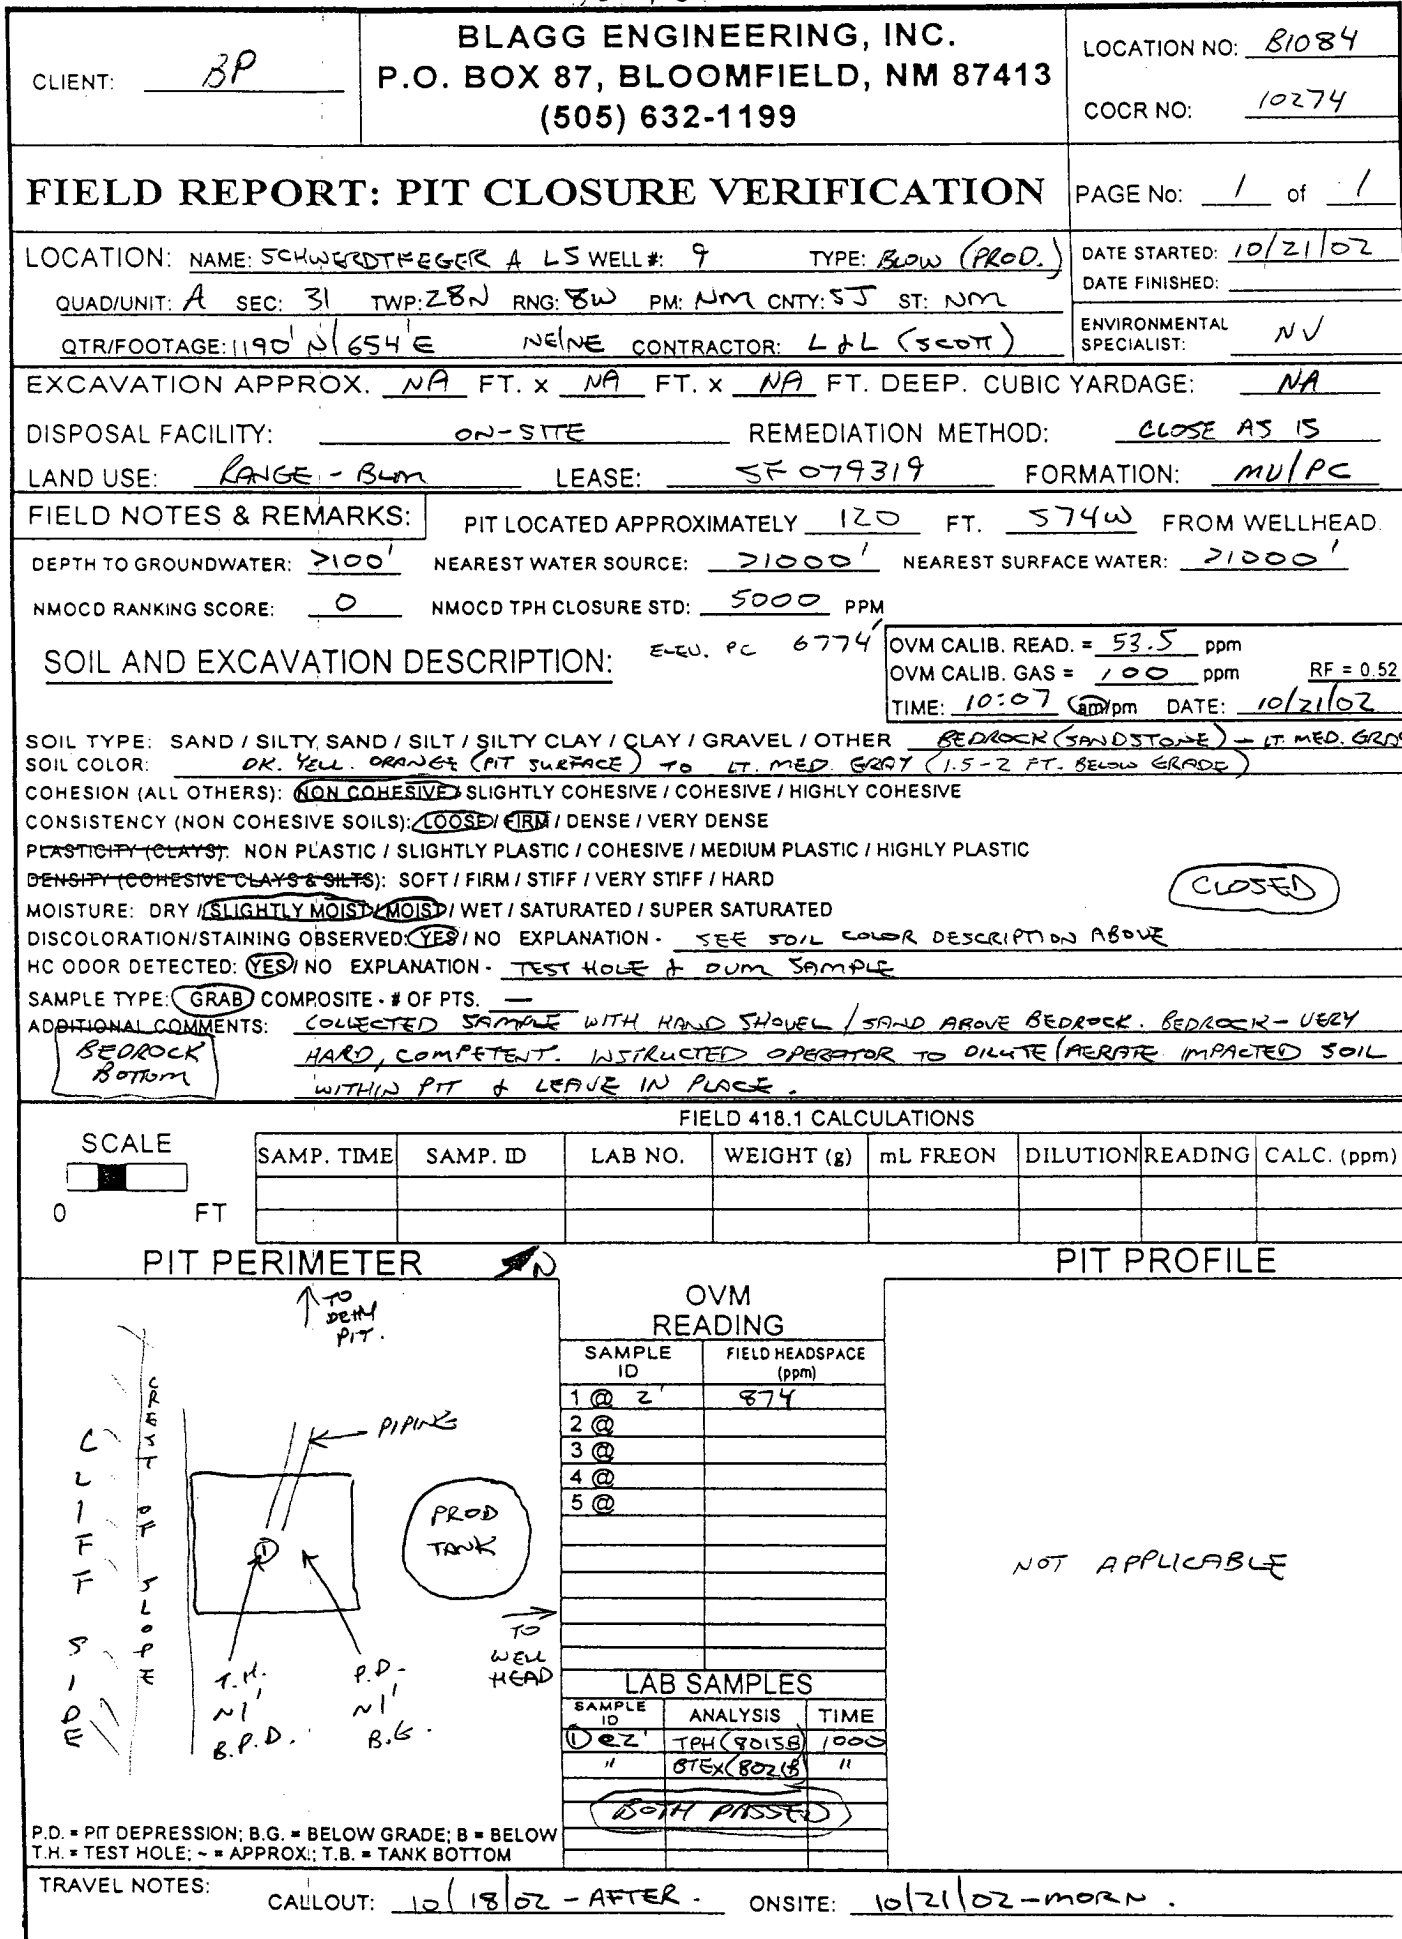 CLIENT: BP
BLAGG ENGINEERING, INC.
P.O. BOX 87, BLOOMFIELD, NM 87413
(505) 632-1199
LOCATION NO: B1084
COCR NO: 10274
FIELD REPORT: PIT CLOSURE VERIFICATION
PAGE No: 1 of 1
LOCATION: NAME: SCHWERDTFEGER A LS WELL #: 9 TYPE: BLOW (PROD.)
QUAD/UNIT: A SEC: 31 TWP: 28N RNG: 8W PM: NM CNTY: SJ ST: NM
QTR/FOOTAGE: 1190' N/654'E NE/NE CONTRACTOR: L & L (SCOTT)
DATE STARTED: 10/21/02
DATE FINISHED:
ENVIRONMENTAL
SPECIALIST: NV
EXCAVATION APPROX. NA FT. x NA FT. x NA FT. DEEP. CUBIC YARDAGE: NA
DISPOSAL FACILITY: ON-SITE REMEDIATION METHOD: CLOSE AS IS
LAND USE: RANGE - BLM LEASE: SF 079319 FORMATION: MV/PC
FIELD NOTES & REMARKS: PIT LOCATED APPROXIMATELY 120 FT. S74W FROM WELLHEAD.
DEPTH TO GROUNDWATER: >100' NEAREST WATER SOURCE: >1000' NEAREST SURFACE WATER: >1000'
NMOCD RANKING SCORE: 0 NMOCD TPH CLOSURE STD: 5000 PPM
SOIL AND EXCAVATION DESCRIPTION: ELEV. PC 6774'
OVM CALIB. READ. = 53.5 ppm
OVM CALIB. GAS = 100 ppm RF = 0.52
TIME: 10:07 am/pm DATE: 10/21/02
SOIL TYPE: SAND / SILTY SAND / SILT / SILTY CLAY / CLAY / GRAVEL / OTHER BEDROCK (SANDSTONE) - LT. MED. GRAY
SOIL COLOR: DK. YELL. ORANGE (PIT SURFACE) TO LT. MED. GRAY (1.5-2 FT. BELOW GRADE)
COHESION (ALL OTHERS): NON COHESIVE / SLIGHTLY COHESIVE / COHESIVE / HIGHLY COHESIVE
CONSISTENCY (NON COHESIVE SOILS): LOOSE / FIRM / DENSE / VERY DENSE
PLASTICITY (CLAYS): NON PLASTIC / SLIGHTLY PLASTIC / COHESIVE / MEDIUM PLASTIC / HIGHLY PLASTIC
DENSITY (COHESIVE CLAYS & SILTS): SOFT / FIRM / STIFF / VERY STIFF / HARD
CLOSED
MOISTURE: DRY / SLIGHTLY MOIST / MOIST / WET / SATURATED / SUPER SATURATED
DISCOLORATION/STAINING OBSERVED: YES / NO EXPLANATION - SEE SOIL COLOR DESCRIPTION ABOVE
HC ODOR DETECTED: YES / NO EXPLANATION - TEST HOLE & OVM SAMPLE
SAMPLE TYPE: GRAB COMPOSITE - # OF PTS. —
ADDITIONAL COMMENTS: COLLECTED SAMPLE WITH HAND SHOVEL / SAND ABOVE BEDROCK. BEDROCK - VERY
BEDROCK
BOTTOM
HARD, COMPETENT. INSTRUCTED OPERATOR TO DILUTE/AERATE IMPACTED SOIL
WITHIN PIT & LEAVE IN PLACE.
FIELD 418.1 CALCULATIONS
SCALE
0 FT
SAMP. TIME SAMP. ID LAB NO. WEIGHT (g) mL FREON DILUTION READING CALC. (ppm)
PIT PERIMETER N
PIT PROFILE
TO
DEHY
PIT.
CREST OF SLOPE
CLIFF SIDE
PIPING
PROD
TANK
1
T.H.
~1'
B.P.D.
P.D.
~1'
B.G.
TO
WELL
HEAD
OVM
READING
SAMPLE
ID
FIELD HEADSPACE
(ppm)
1 @ 2' 874
2 @
3 @
4 @
5 @
LAB SAMPLES
SAMPLE
ID
ANALYSIS TIME
1 @ 2' TPH (8015B) 1000
" BTEX (8021B) "
BOTH PASSED
NOT APPLICABLE
P.D. = PIT DEPRESSION; B.G. = BELOW GRADE; B = BELOW
T.H. = TEST HOLE; ~ = APPROX.; T.B. = TANK BOTTOM
TRAVEL NOTES: CALLOUT: 10/18/02 - AFTER. ONSITE: 10/21/02 - MORN.